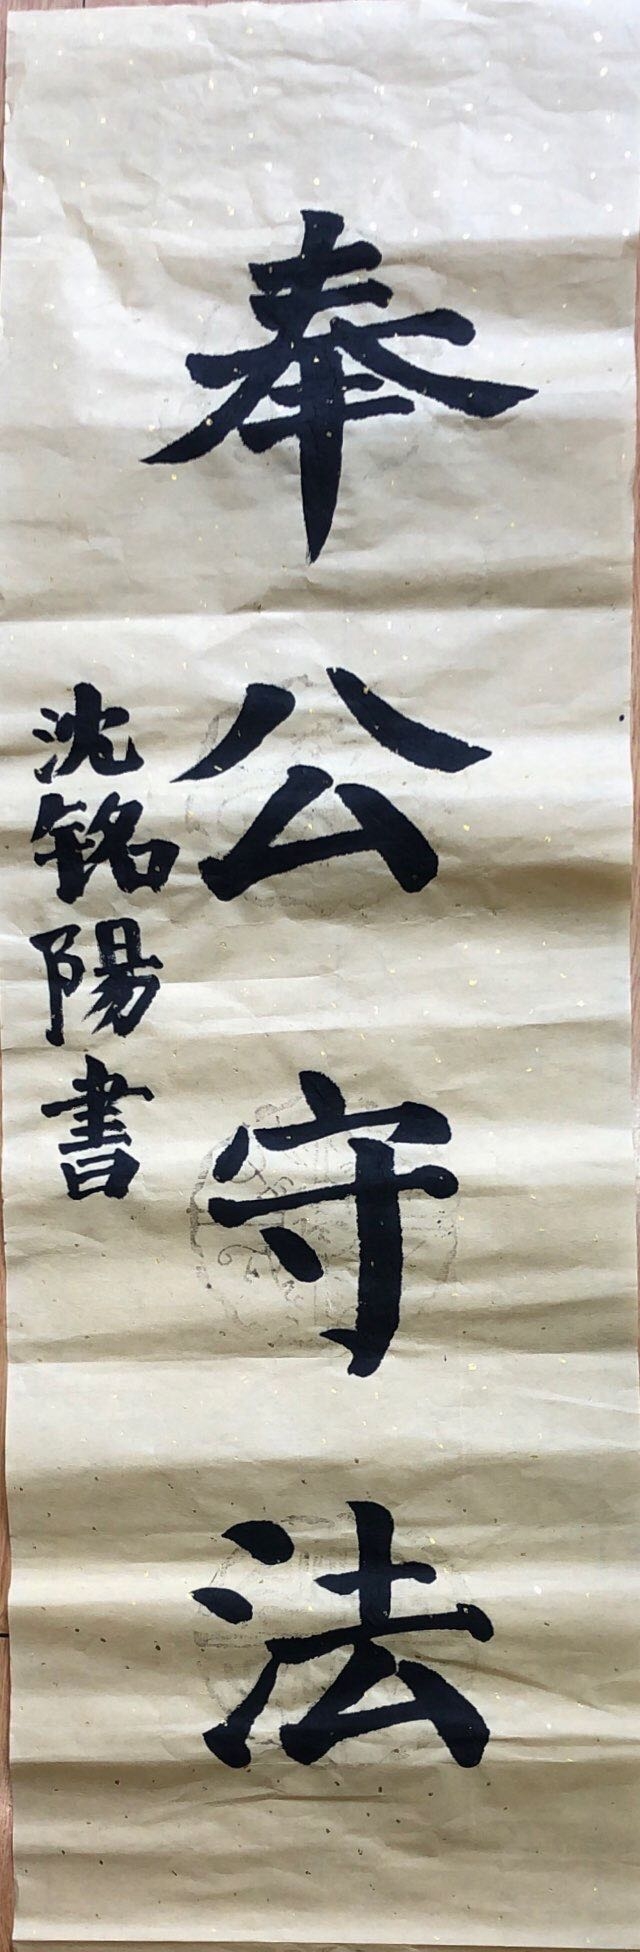 奉公守法
沈铭陽書